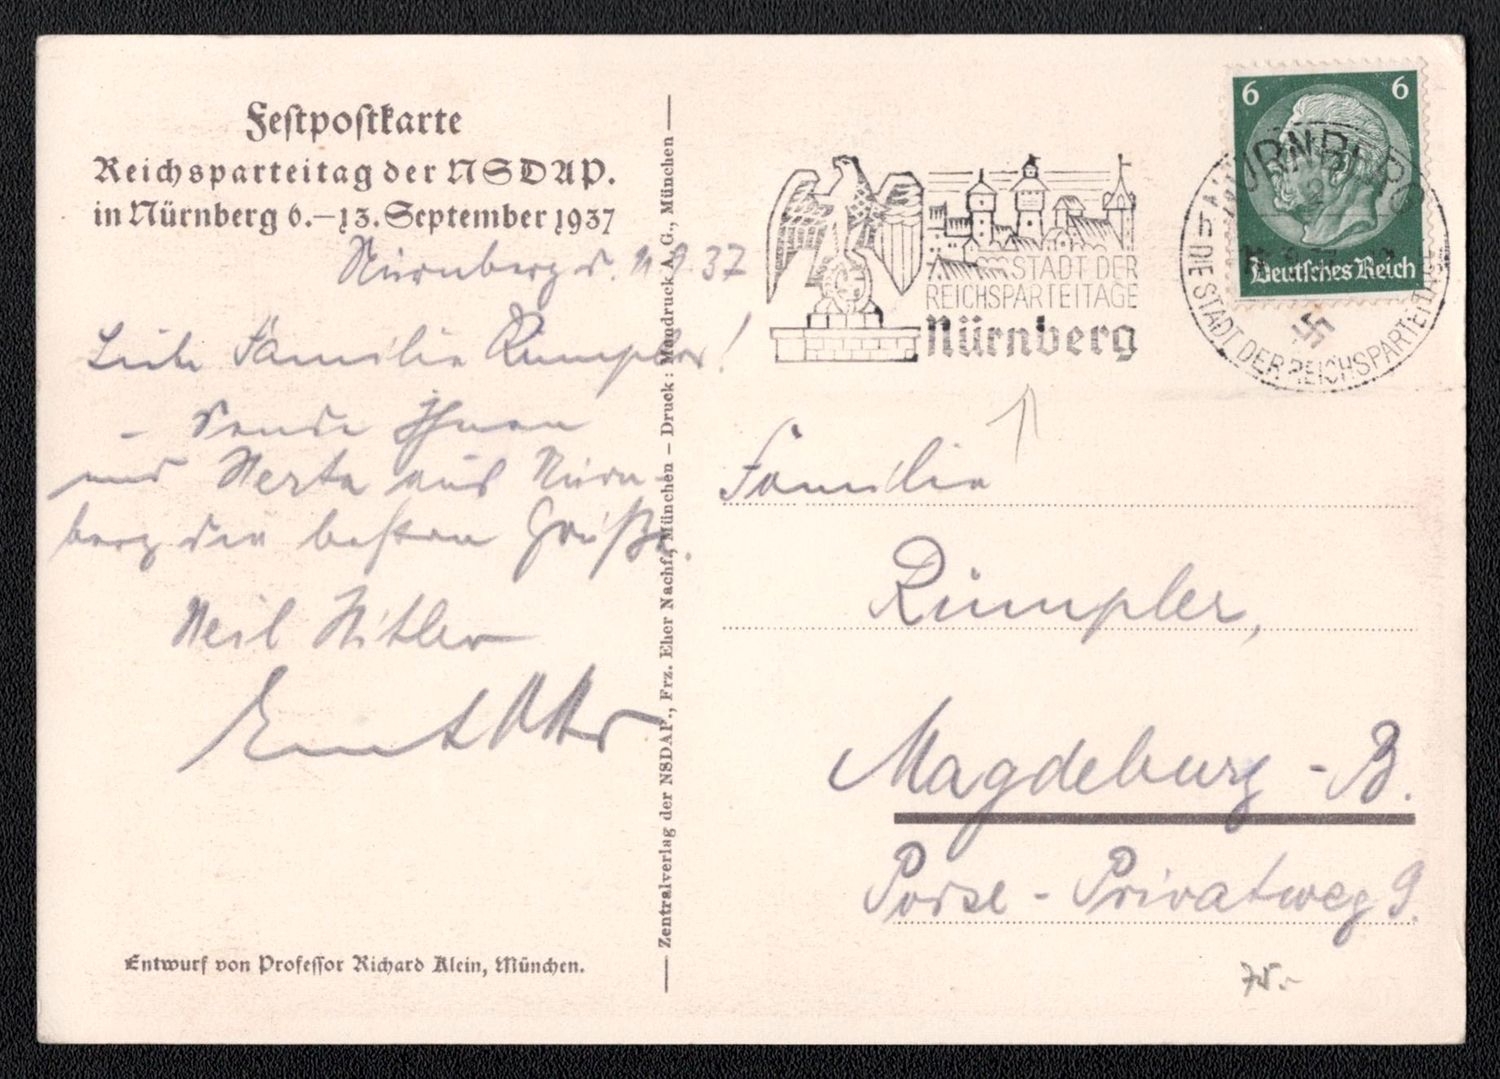 Festpostkarte
Reichsparteitag der NSDAP.
in Nürnberg 6.–13. September 1937
Nürnberg d. 11.9.37
Liebe Familie Rumpler!
– Sende Ihnen
und Herta aus Nürn-
berg die besten Grüße.
Heil Hitler
Entwurf von Professor Richard Klein, München.
Zentralverlag der NSDAP., Frz. Eher Nachf., München – Druck: Mandruck A. G., München
STADT DER
REICHSPARTEITAGE
Nürnberg
6 6
Deutsches Reich
NÜRNBERG
2
DIE STADT DER REICHSPARTEITAGE
Familie
Rumpler,
Magdeburg-B.
Porse-Privatweg 9.
75.-